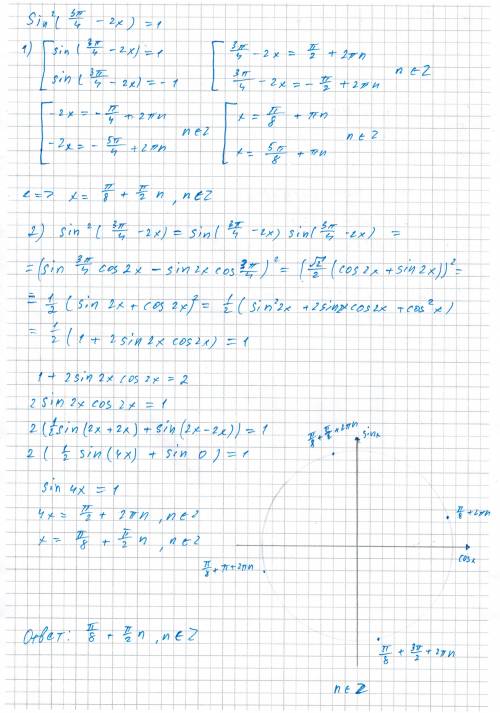 Sin²(3π/4 − 2x) = 1
1) [ sin(3π/4 − 2x) = 1   [ 3π/4 − 2x = π/2 + 2πn
sin(3π/4 − 2x) = −1   3π/4 − 2x = −π/2 + 2πn   n∈Z
[ −2x = −π/4 + 2πn   [ x = π/8 + πn
−2x = −5π/4 + 2πn   n∈Z   x = 5π/8 + πn   n∈Z
<=> x = π/8 + π/2 n, n∈Z
2) sin²(3π/4 − 2x) = sin(3π/4 − 2x) sin(3π/4 − 2x) =
= (sin 3π/4 cos2x − sin2x cos 3π/4)² = (√2/2 (cos2x + sin2x))² =
= 1/2 (sin 2x + cos 2x)² = 1/2 (sin²2x + 2sin2x cos2x + cos²x)
= 1/2 (1 + 2sin2x cos2x) = 1
1 + 2sin2x cos2x = 2
2sin2x cos2x = 1
2(1/2 sin(2x + 2x) + sin(2x − 2x)) = 1
2(1/2 sin(4x) + sin 0) = 1
sin 4x = 1
4x = π/2 + 2πn, n∈Z
x = π/8 + π/2 n, n∈Z
Ответ: π/8 + π/2 n, n∈Z
sinx
π/8 + π/2 + 2πn
π/8 + 2πn
cosx
π/8 + π + 2πn
π/8 + 3π/2 + 2πn
n∈Z